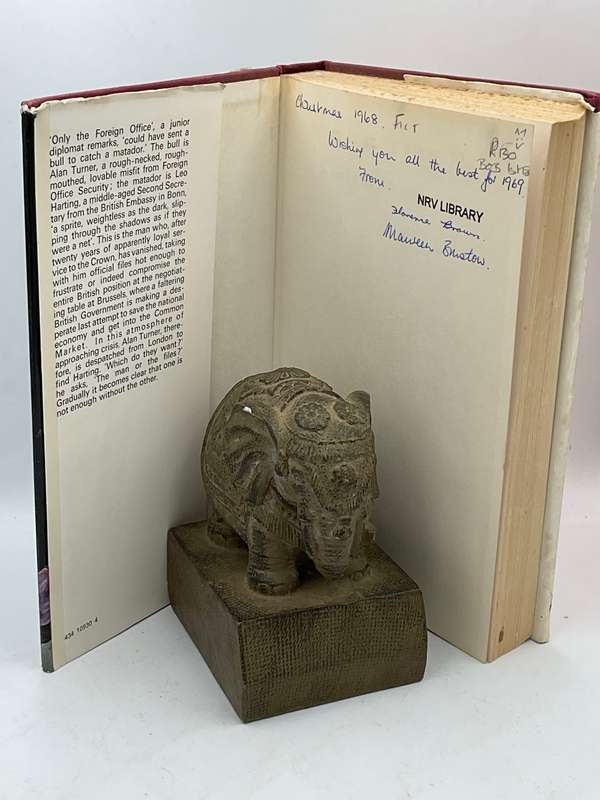 'Only the Foreign Office', a junior
diplomat remarks, 'could have sent a
bull to catch a matador.' The bull is
Alan Turner, a rough-necked, rough-
mouthed, lovable misfit from Foreign
Office Security; the matador is Leo
Harting, a middle-aged Second Secre-
tary from the British Embassy in Bonn,
'a sprite, weightless as the dark, slip-
ping through the shadows as if they
were a net'. This is the man who, after
twenty years of apparently loyal ser-
vice to the Crown, has vanished, taking
with him official files hot enough to
frustrate or indeed compromise the
entire British position at the negotiat-
ing table at Brussels, where a faltering
British Government is making a des-
perate last attempt to save the national
economy and get into the Common
Market. In this atmosphere of
approaching crisis, Alan Turner, there-
fore, is despatched from London to
find Harting. 'Which do they want?'
he asks, 'The man or the files?'
Gradually it becomes clear that one is
not enough without the other.
434 10930 4
Christmas 1968. Fict
Wishing you all the best for 1969
From.
NRV LIBRARY
Florence Brown.
Maureen Bristow.
M
V
RBO